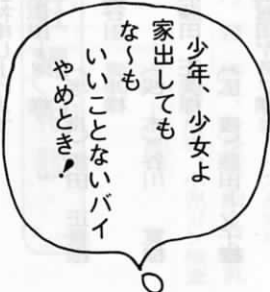 少年、少女よ
家出しても
な～も
いいことないバイ
やめとき！